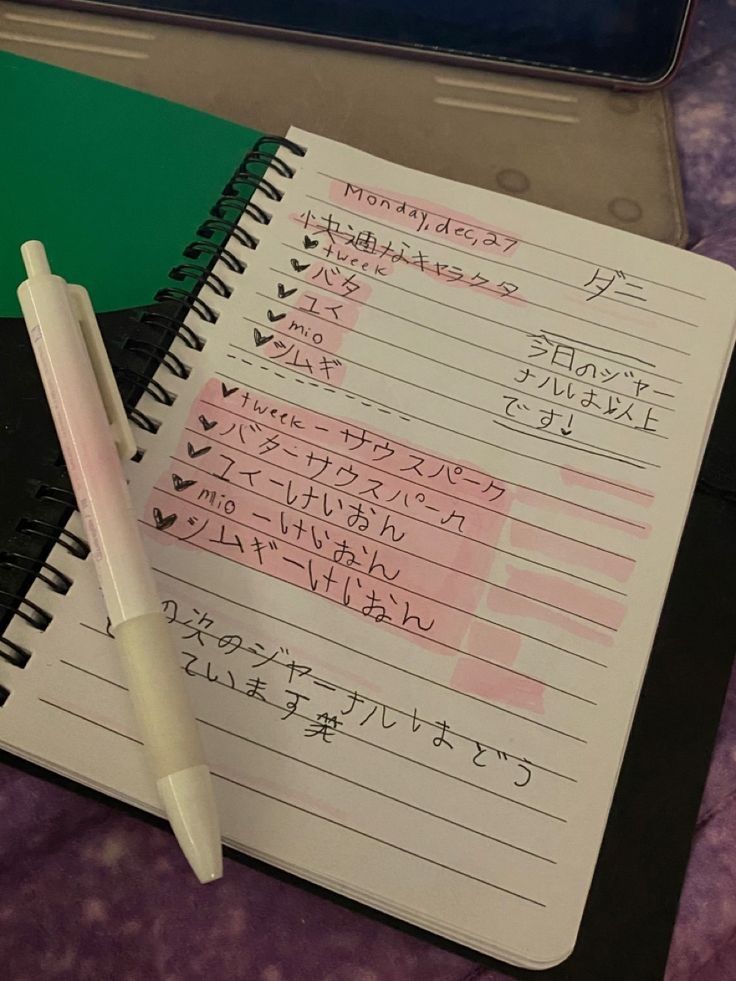 Monday, dec, 27
快適なキャラクタ
ダニ
♥ tweek
♥ バタ
♥ ユイ
♥ mio
♥ ツムギ
今日のジャー
ナルは以上
です!
♥ tweek ー サウスパーク
♥ バターサウスパーク
♥ ユイーけいおん
♥ mio ーけいおん
♥ ツムギーけいおん
の次のジャーナルはどう
ています笑